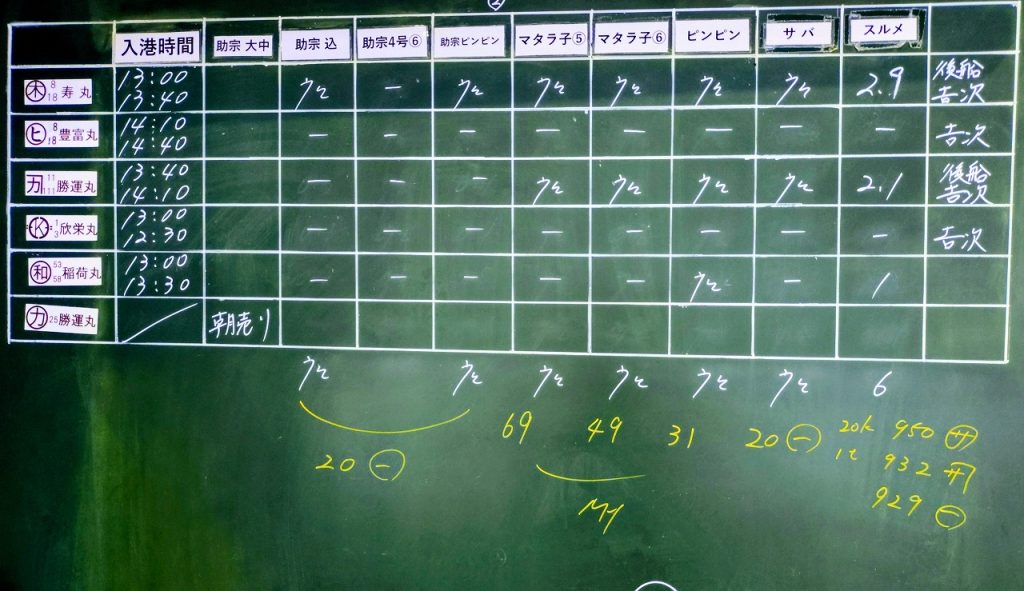 ②
入港時間 助宗 大中 助宗 込 助宗4号⑥ 助宗ピンピン マタラ子⑤ マタラ子⑥ ピンピン サバ スルメ
㊍ 8 18 寿丸 13:00 13:40 ウン — ウン ウン ウン ウン ウン 2.9 後船 吉次
㋪ 8 18 豊富丸 14:10 14:40 — — — — — — — — 吉次
カ 11 111 勝運丸 13:40 14:10 — — — ウン ウン ウン ウン 2.1 後船 吉次
Ⓚ 1 3 欣栄丸 13:00 12:30 — — — — — — — — 吉次
和 53 58 稲荷丸 13:00 13:30 — — — — — ウン — 1
㋕ 25 勝運丸 朝売り
ウン ウン ウン ウン ウン ウン 6
69 49 31 20 ㊀ 20k 950 ㋚
20 ㊀ 1t 932
My 929 ㊀